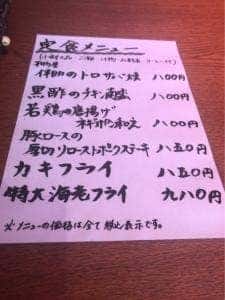 定食メニュー
(小鉢2品 ご飯 汁物 お新香 コーヒー付)
伊勢のトロさば焼 八〇〇円
黒酢のチキン南蛮 八〇〇円
若鶏の唐揚げ
八〇〇円
豚ロースの
厚切りローストポークステーキ 八五〇円
カキフライ 八五〇円
特大海老フライ 九八〇円
※メニューの価格は全て税込表示です。